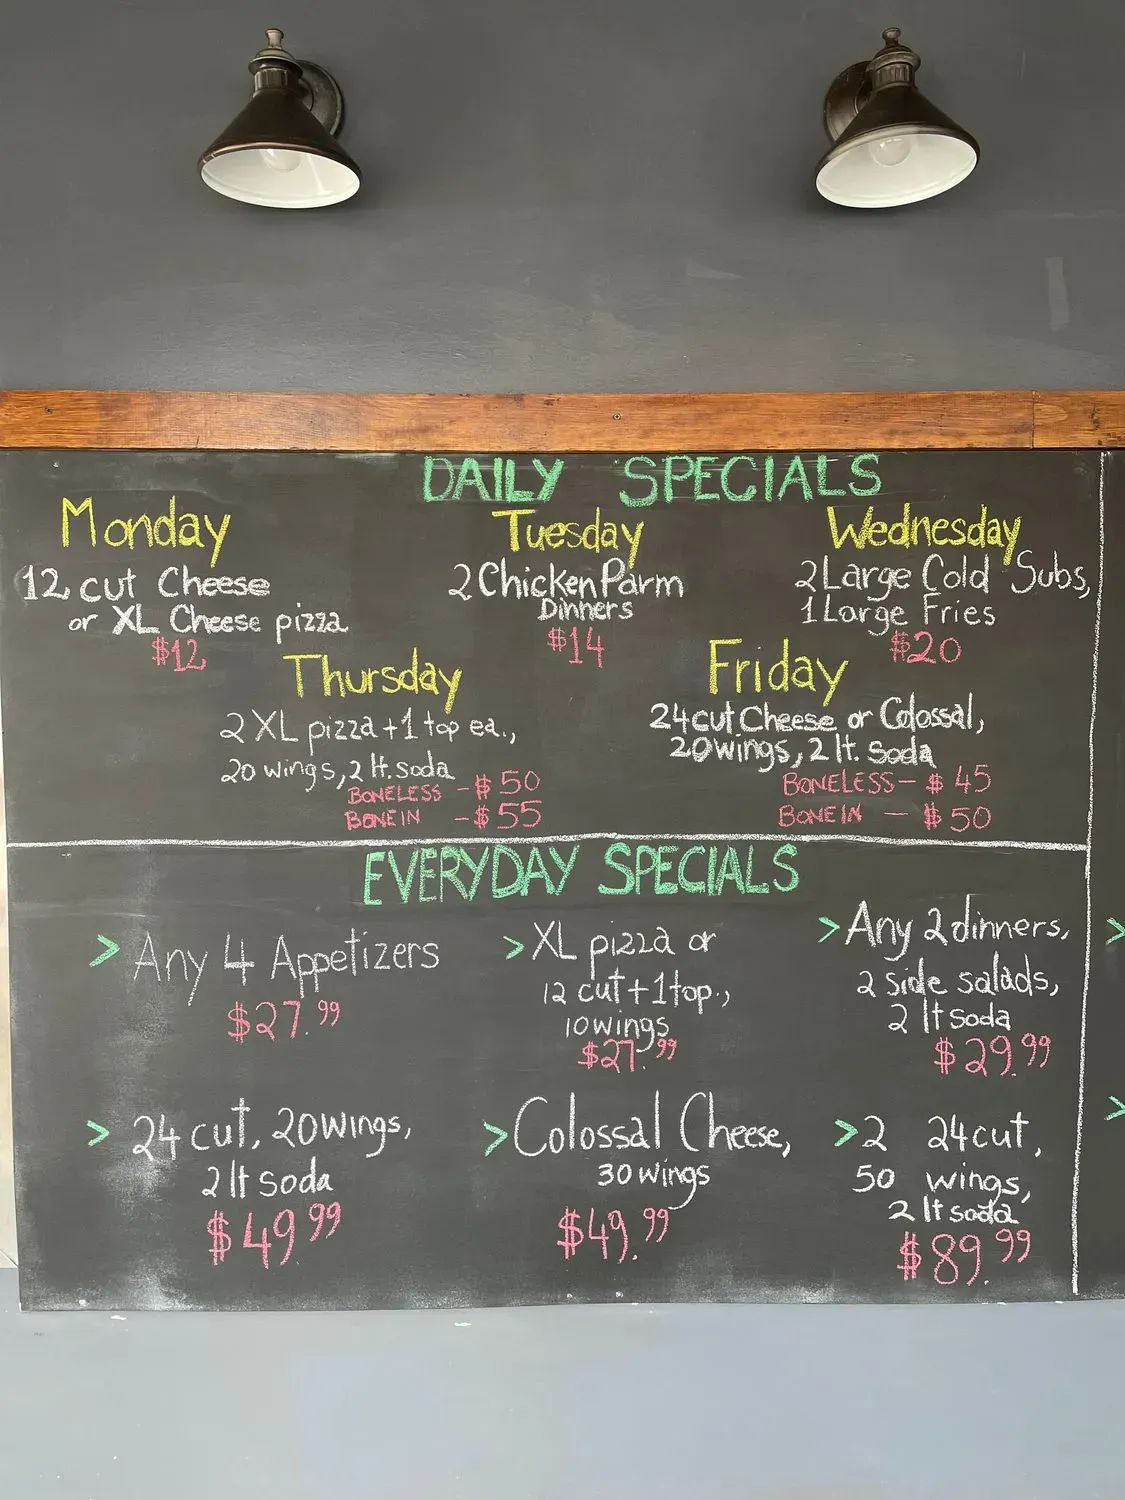 DAILY SPECIALS
Monday
12 cut Cheese
or XL Cheese pizza
$12
Tuesday
2 Chicken Parm
Dinners
$14
Wednesday
2 Large Cold Subs,
1 Large Fries
$20
Thursday
2 XL pizza + 1 top ea.,
20 wings, 2 lt. soda
BONELESS - $50
BONE IN - $55
Friday
24 cut Cheese or Colossal,
20 wings, 2 lt. soda
BONELESS - $45
BONE IN - $50
EVERYDAY SPECIALS
> Any 4 Appetizers
$27.99
> XL pizza or
12 cut + 1 top.,
10 wings
$27.99
> Any 2 dinners,
2 side salads,
2 lt soda
$29.99
> 24 cut, 20 wings,
2 lt soda
$49.99
> Colossal Cheese,
30 wings
$49.99
> 2 24 cut,
50 wings,
2 lt soda
$89.99
>
>